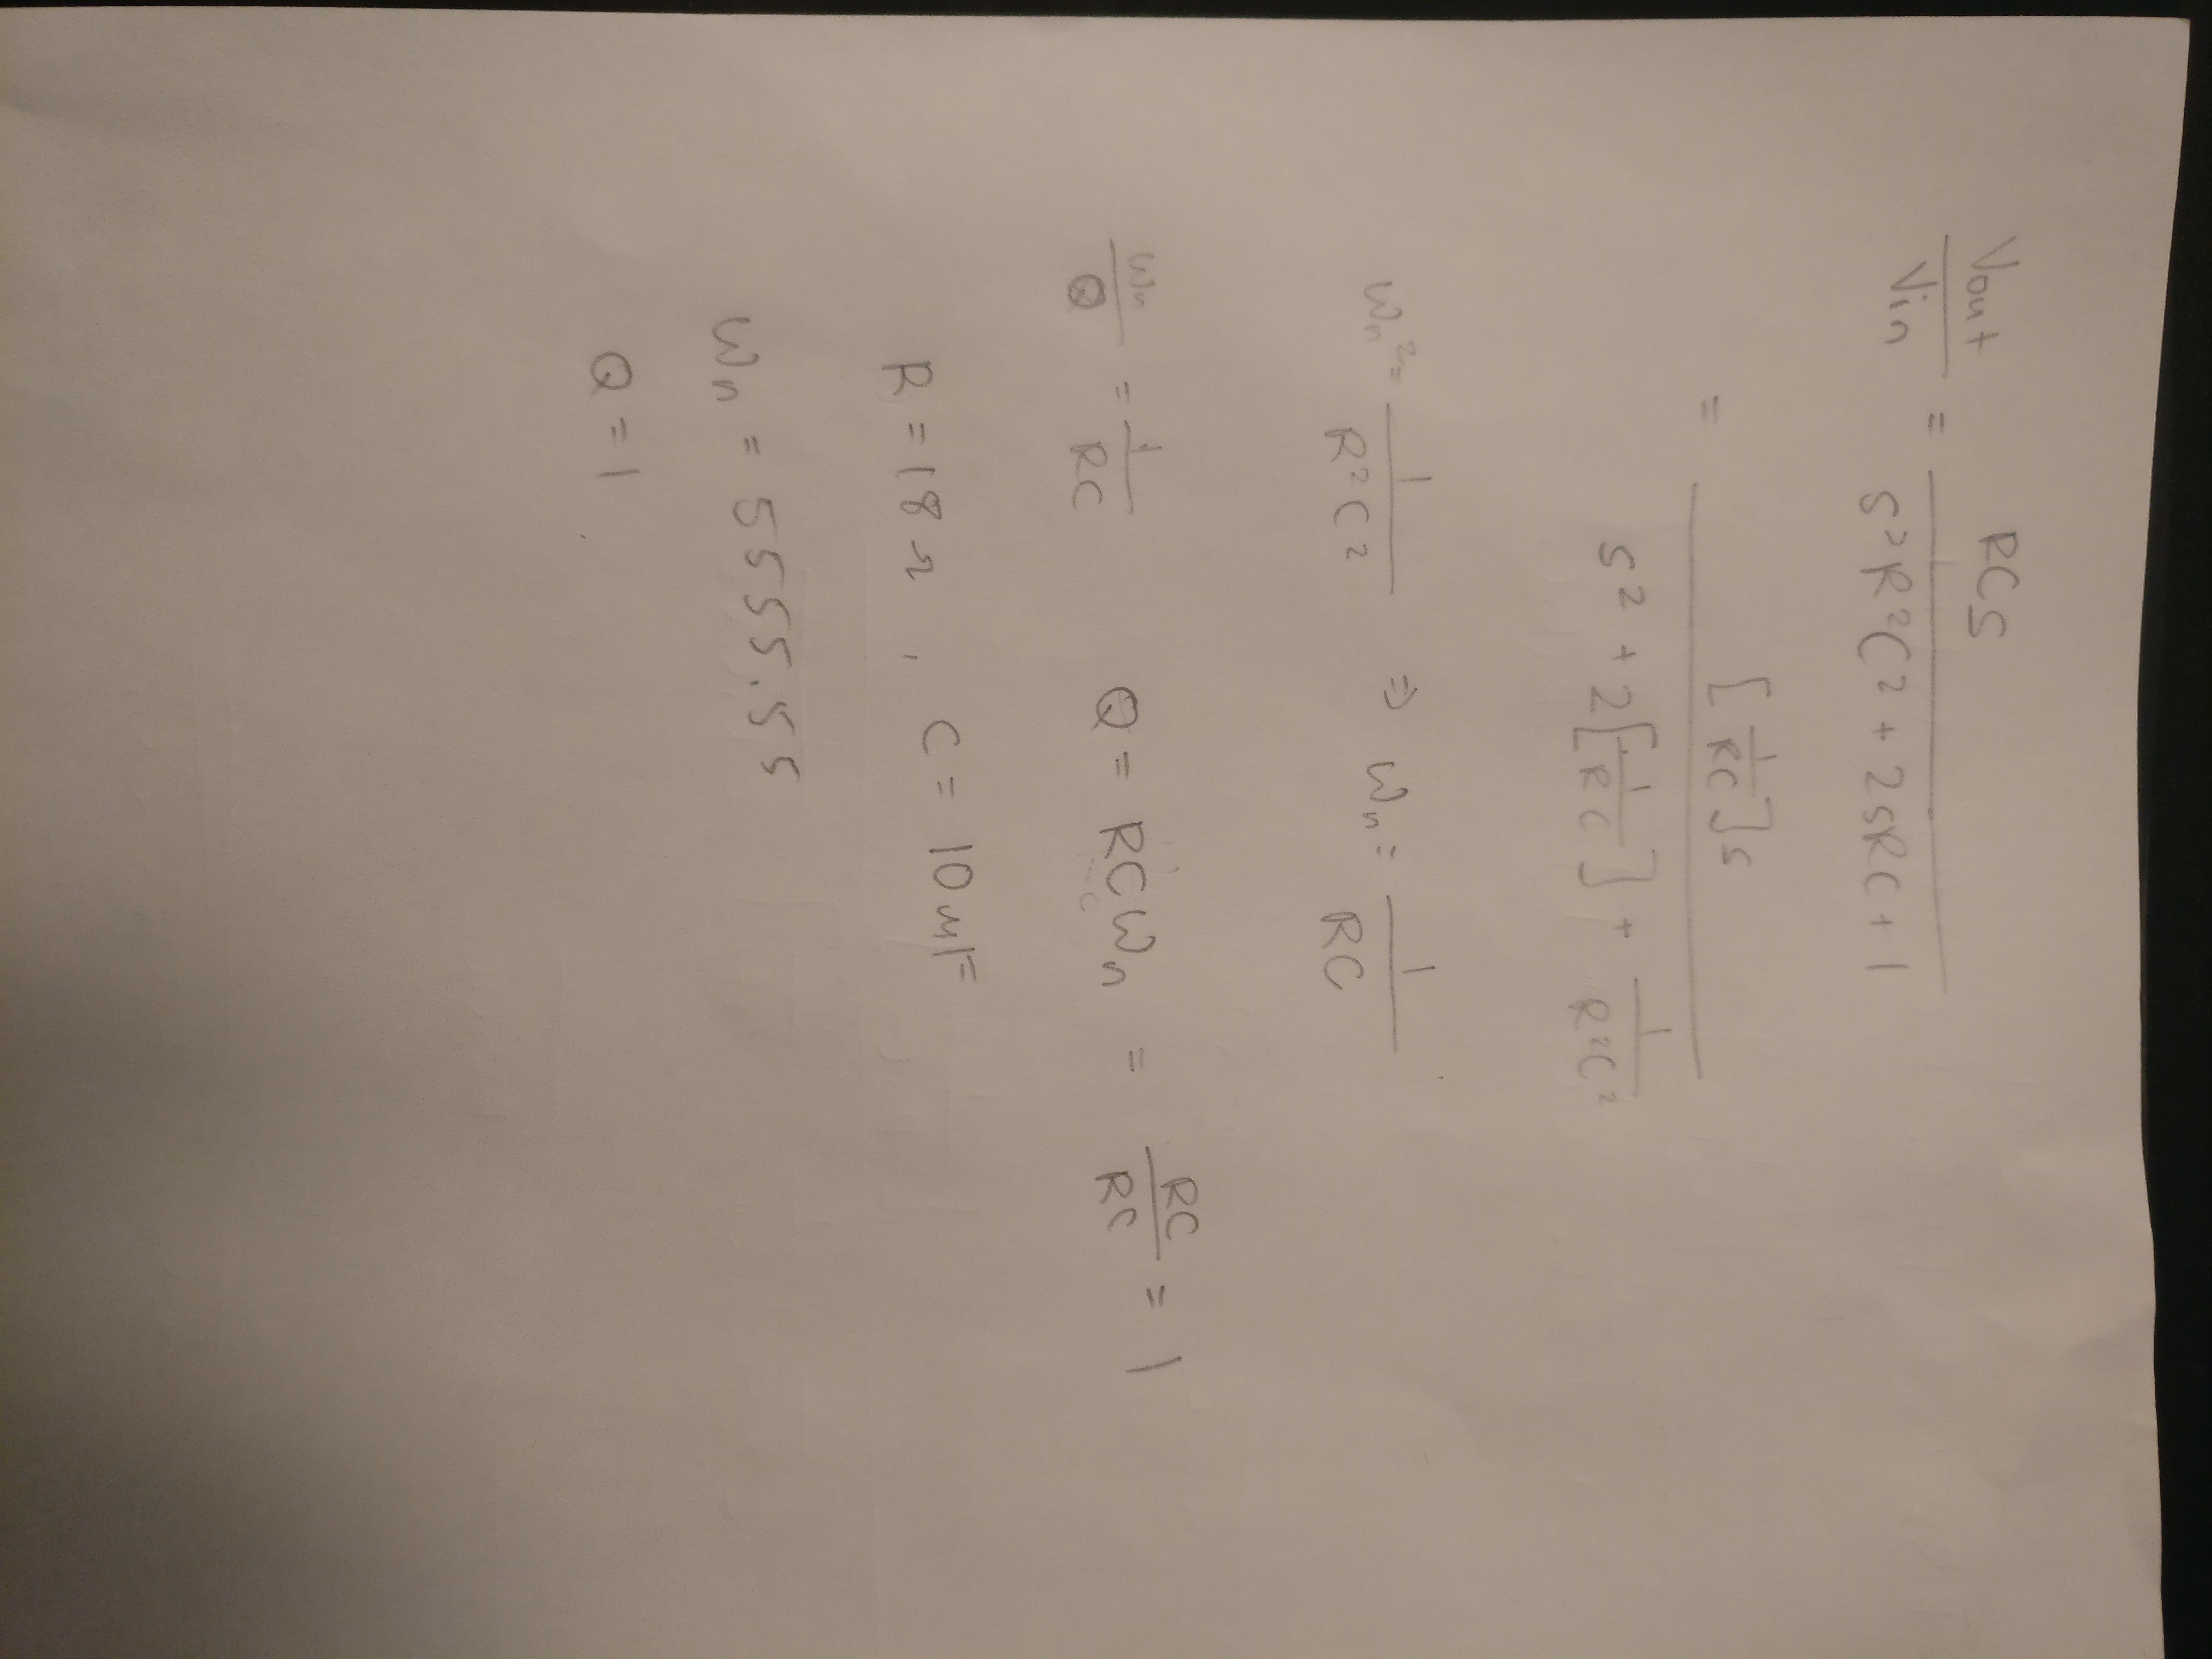 Vout/Vin = RCs / (s²R²C² + 2sRC + 1)
= [1/RC]s / (s² + 2[1/RC] + 1/R²C²)
ωn² = 1/R²C² ⇒ ωn = 1/RC
ωn/Q = 1/RC Q = RCωn = RC/RC = 1
R = 18Ω , C = 10μF
ωn = 5555.55
Q = 1